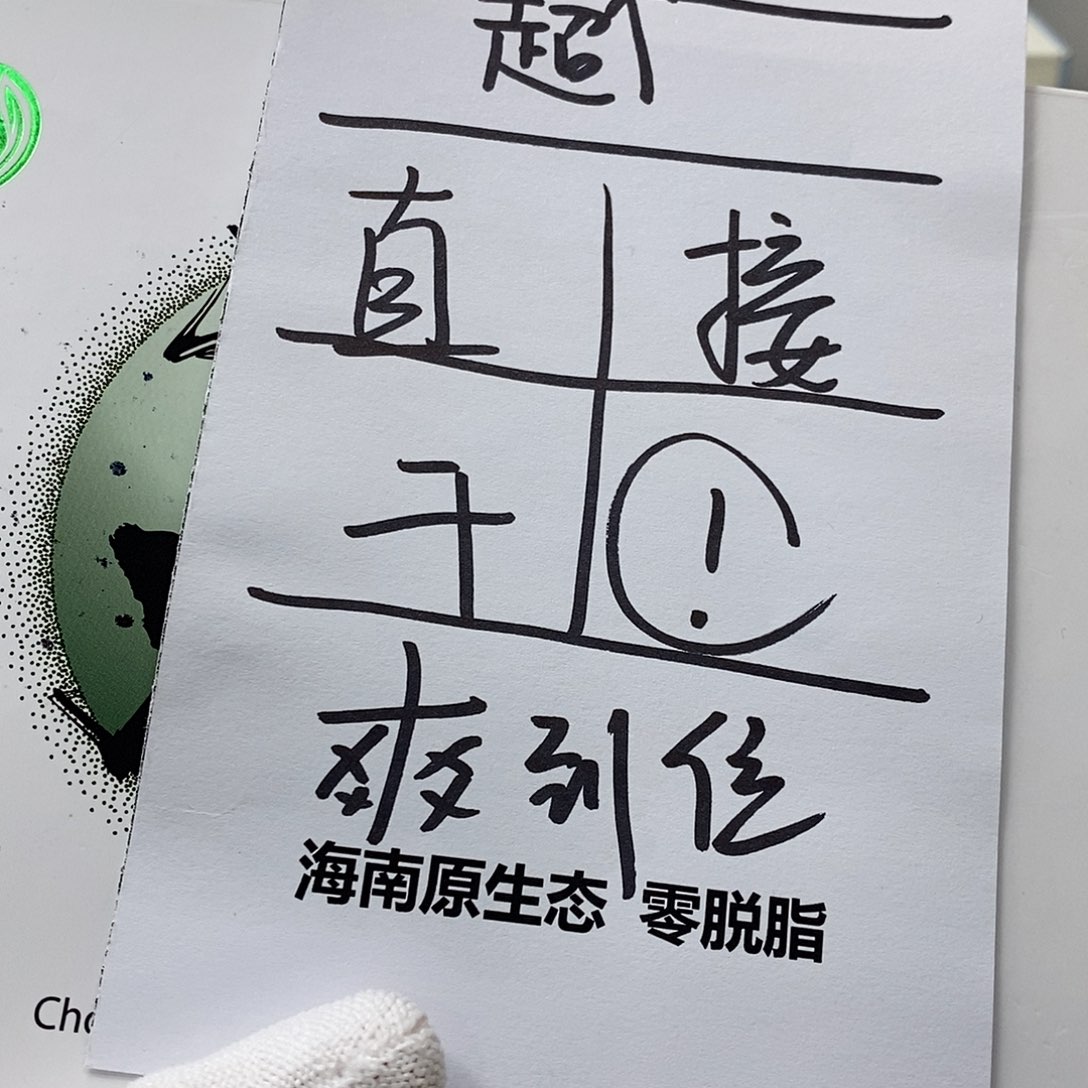 超
直接
干！
爽到位
海南原生态 零脱脂
Cho